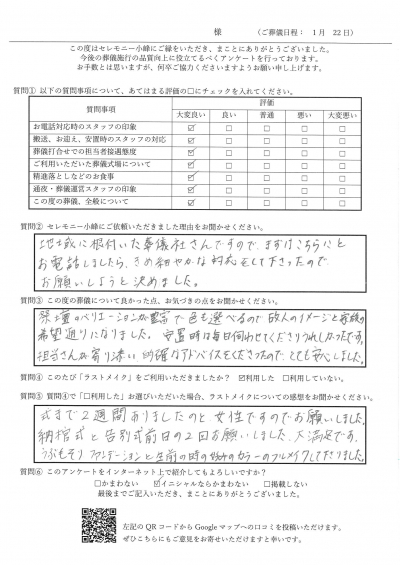 様　（ご葬儀日程：　1月　22日）
この度はセレモニー小峰にご縁をいただき、まことにありがとうございました。
今後の葬儀施行の品質向上に役立てるべくアンケートを行っております。
お手数とは思いますが、何卒ご協力くださいますようお願い申し上げます。
質問① 以下の質問事項について、あてはまる評価の□にチェックを入れてください。
質問事項　評価
大変良い　良い　普通　悪い　大変悪い
お電話対応時のスタッフの印象　☑　□　□　□　□
搬送、お迎え、安置時のスタッフの対応　☑　□　□　□　□
葬儀打合せでの担当者接遇態度　☑　□　□　□　□
ご利用いただいた葬儀式場について　☑　□　□　□　□
精進落としなどのお食事　☑　□　□　□　□
通夜・葬儀運営スタッフの印象　☑　□　□　□　□
この度の葬儀、全般について　☑　□　□　□　□
質問② セレモニー小峰にご依頼いただきました理由をお聞かせください。
地域に根付いた葬儀社さんですので、まずはこちらにと
お電話しましたら、きめ細やかな対応をして下さったので
お願いしようと決めました。
質問③ この度の葬儀について良かった点、お気づきの点をお聞かせください。
祭壇のバリエーションが豊富で色も選べるので故人のイメージと家族の
希望通りになりました。安置時は毎日伺わせてくださりうれしかったです。
担当さんが寄り添い的確なアドバイスをくださったので、とても安心しました。
質問④ このたび「ラストメイク」をご利用いただきましたか？ ☑利用した □利用していない。
質問⑤ 質問④で「□利用した」お選びいただいた場合、ラストメイクについての感想をお聞かせください。
式まで2週間ありましたのと女性ですのでお願いしました。
納棺式と告別式前日の2回お願いしました。大満足です。
ファンデーションと生前の時の のフルメイクして下さいました。
質問⑥ このアンケートをインターネット上で紹介してもよろしいですか？
□かまわない　☑イニシャルならかまわない　□掲載しない
最後までご記入いただき、まことにありがとうございました。
左記のQRコードからGoogleマップへの口コミを投稿いただけます。
ぜひこちらにもご意見をお寄せいただけますと幸いです。